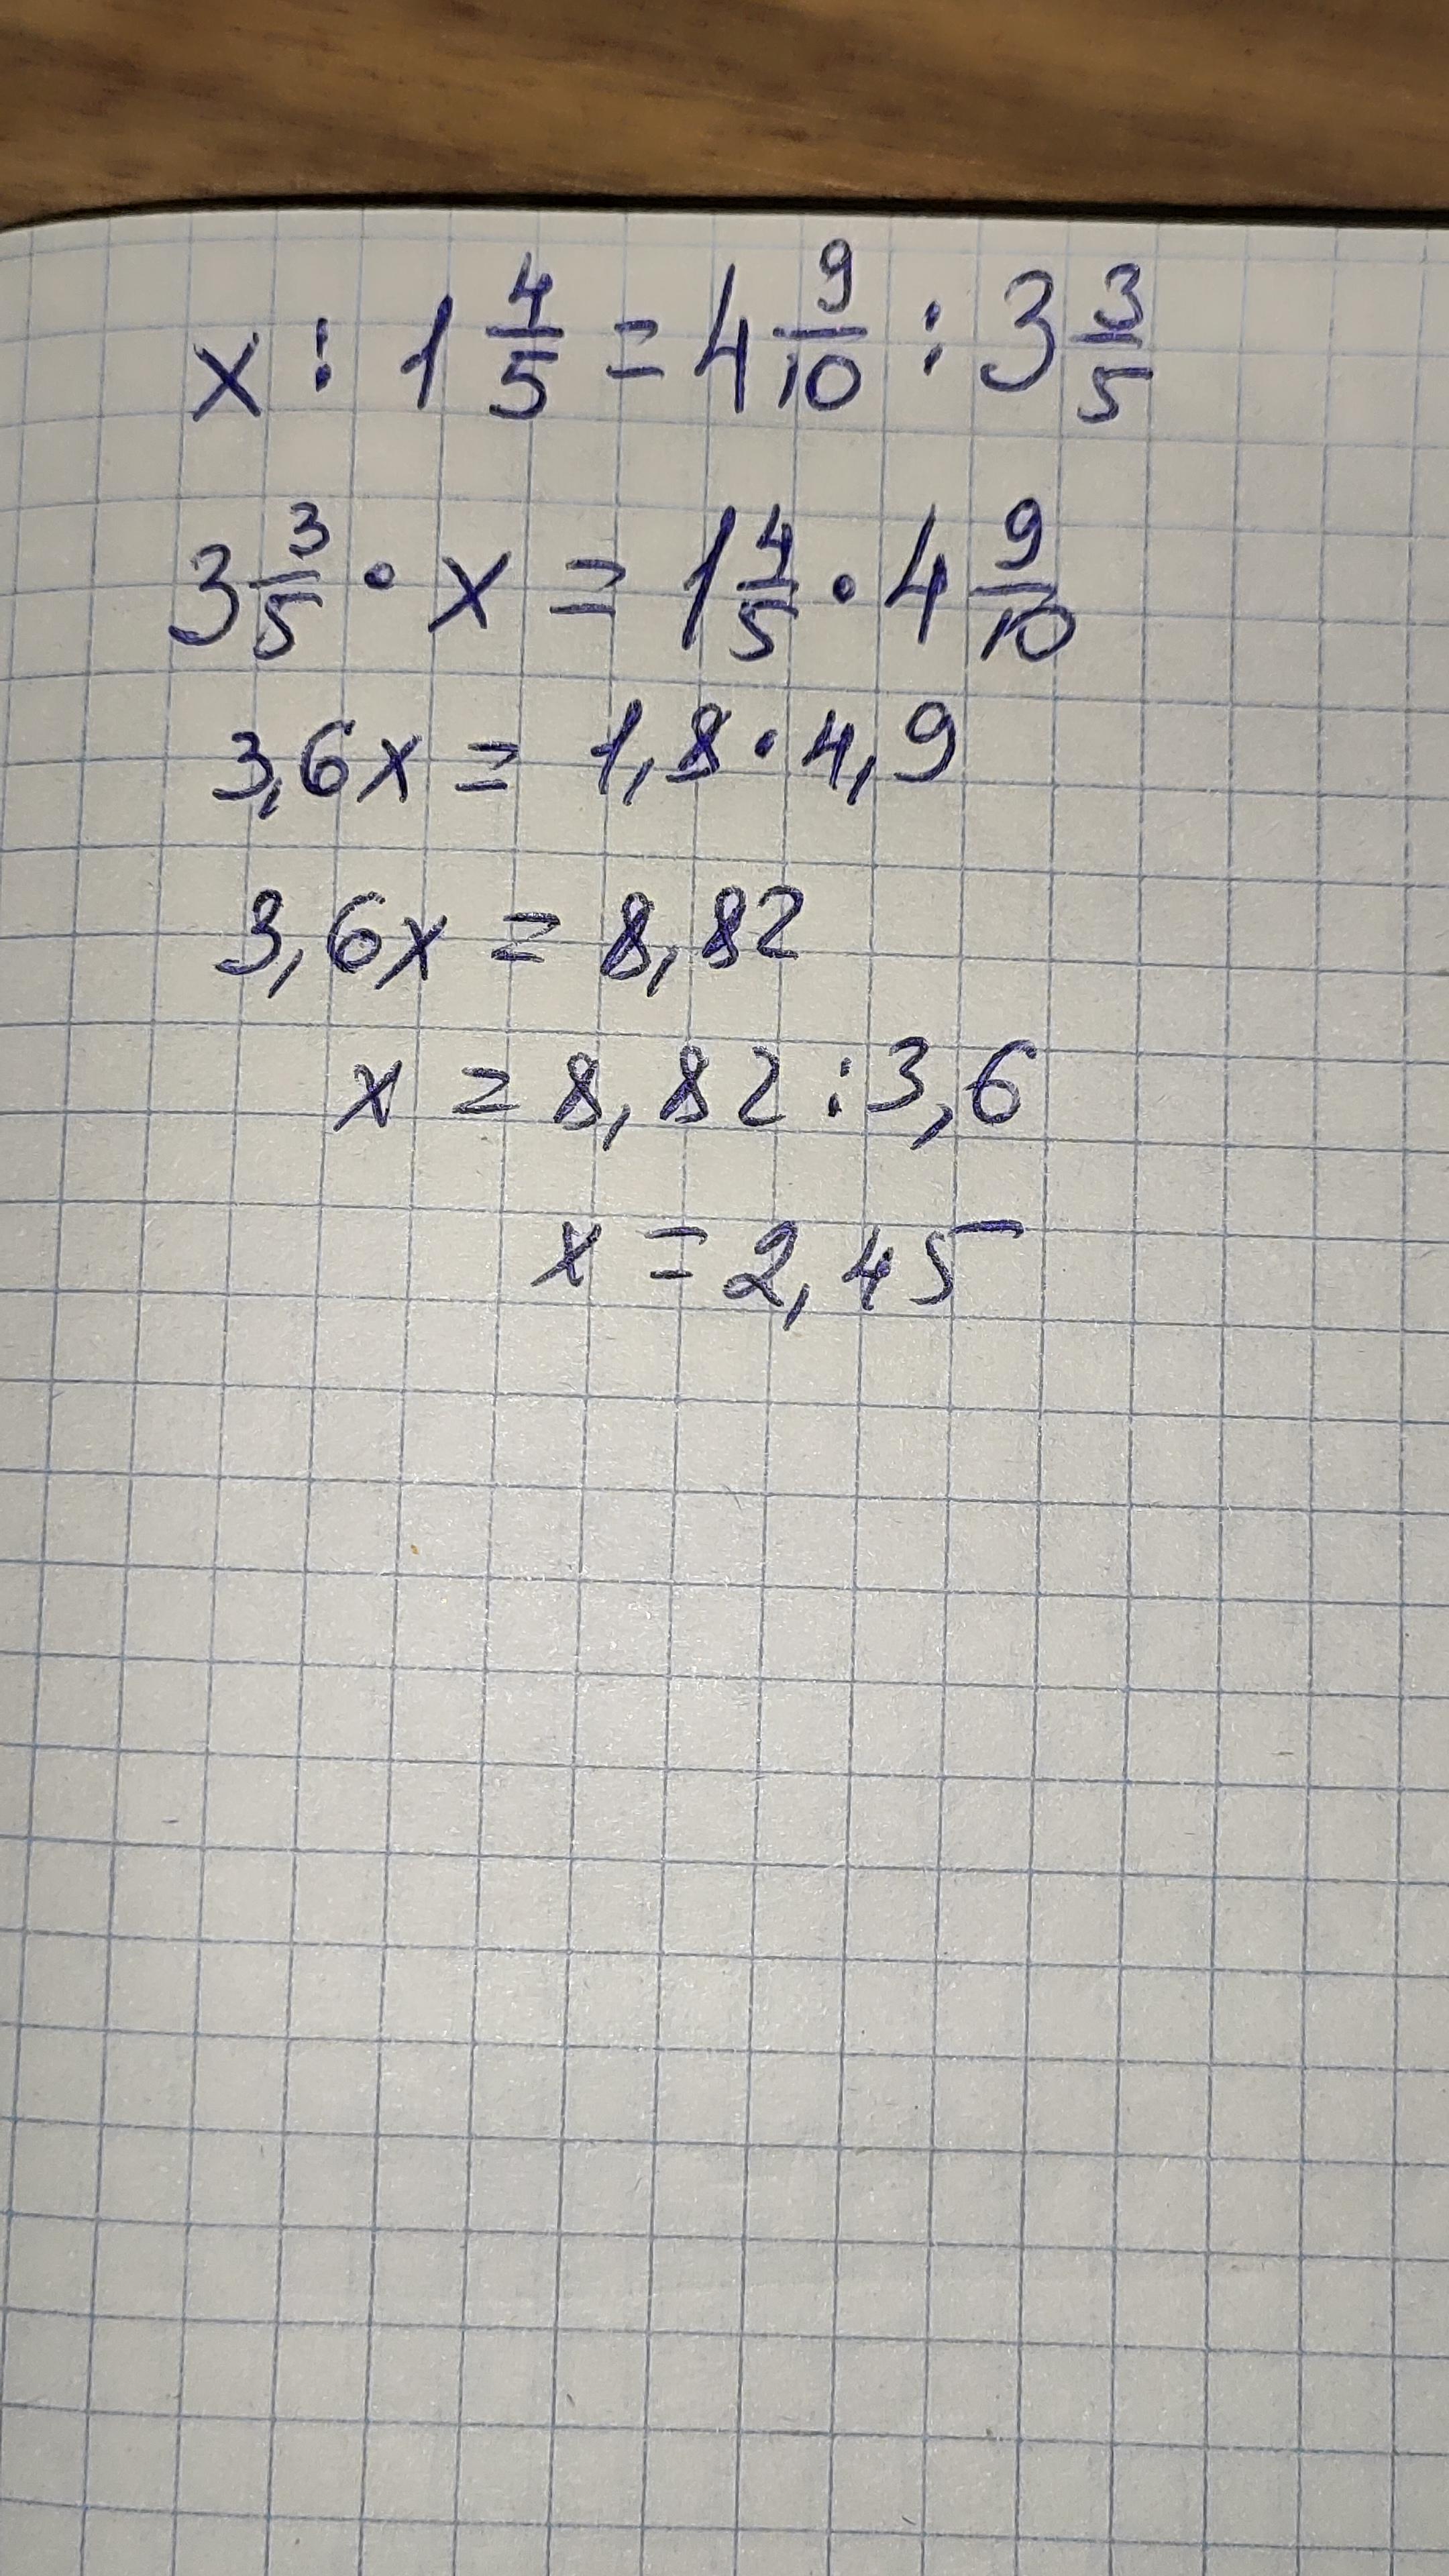 x : 1 4/5 = 4 9/10 : 3 3/5
3 3/5 · x = 1 4/5 · 4 9/10
3,6x = 1,8 · 4,9
3,6x = 8,82
x = 8,82 : 3,6
x = 2,45